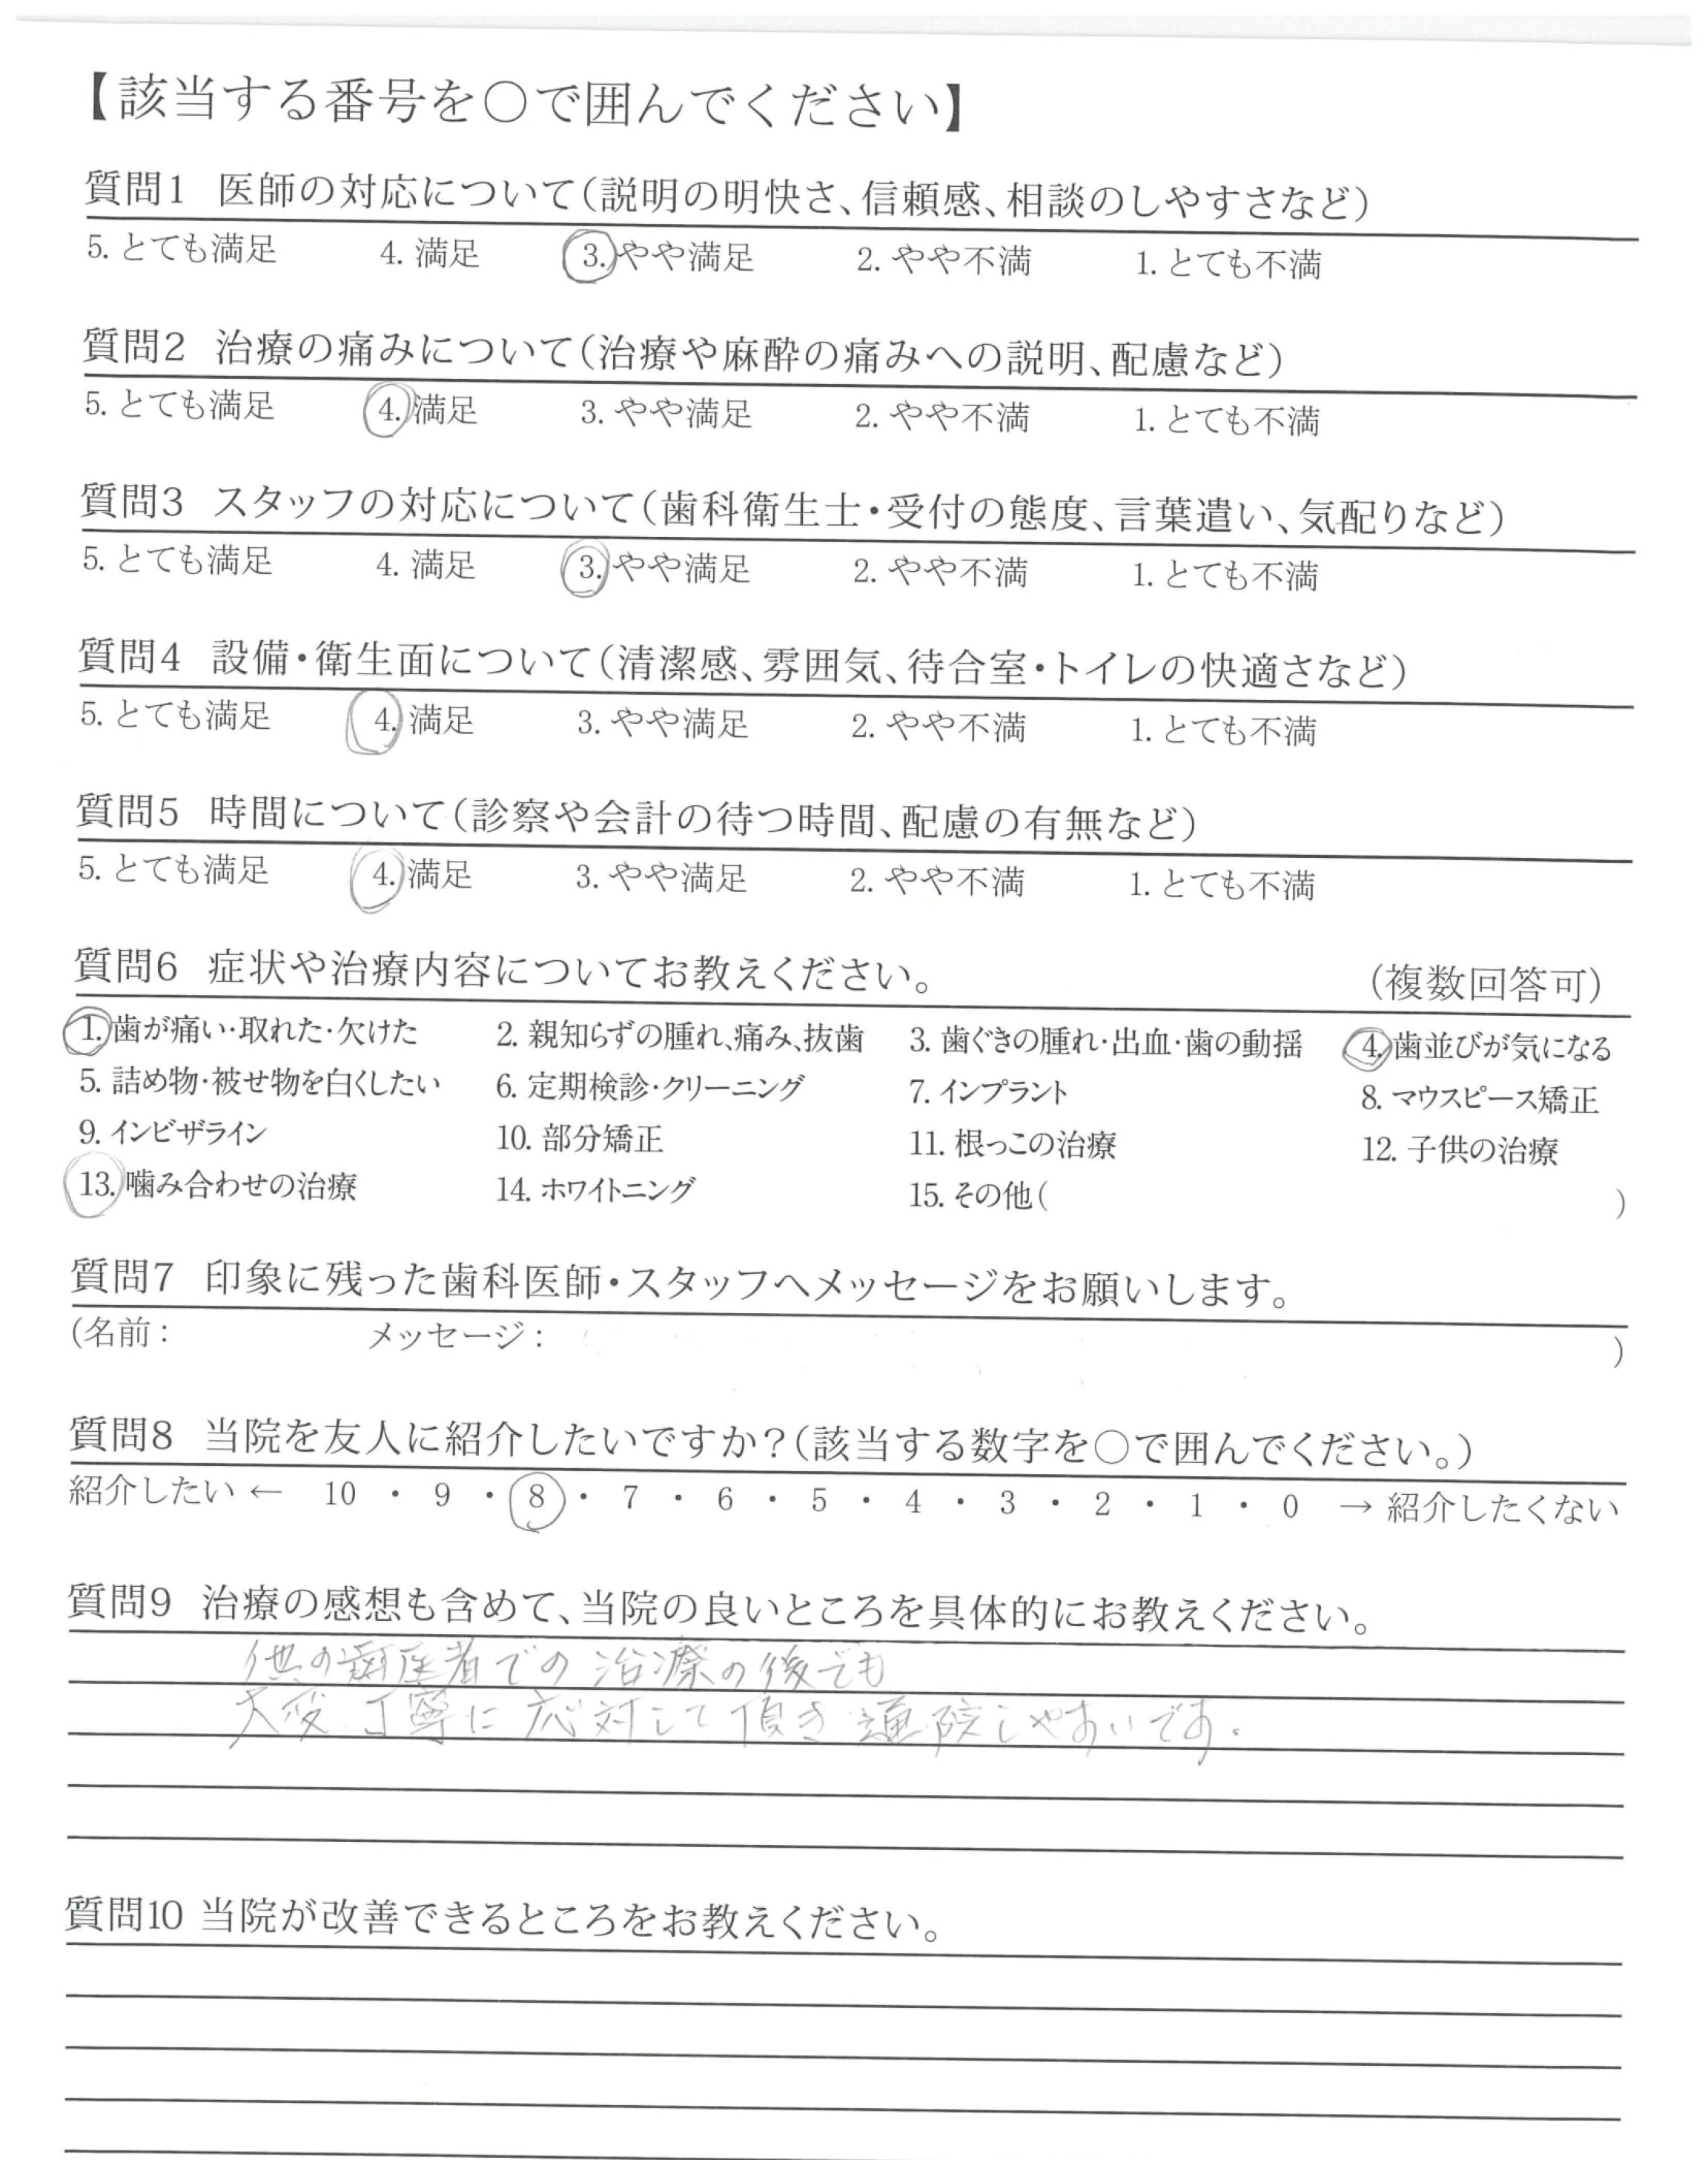 【該当する番号を○で囲んでください】
質問1 医師の対応について(説明の明快さ、信頼感、相談のしやすさなど)
5. とても満足 4. 満足 3. やや満足 2. やや不満 1. とても不満
質問2 治療の痛みについて(治療や麻酔の痛みへの説明、配慮など)
5. とても満足 4. 満足 3. やや満足 2. やや不満 1. とても不満
質問3 スタッフの対応について(歯科衛生士・受付の態度、言葉遣い、気配りなど)
5. とても満足 4. 満足 3. やや満足 2. やや不満 1. とても不満
質問4 設備・衛生面について(清潔感、雰囲気、待合室・トイレの快適さなど)
5. とても満足 4. 満足 3. やや満足 2. やや不満 1. とても不満
質問5 時間について(診察や会計の待つ時間、配慮の有無など)
5. とても満足 4. 満足 3. やや満足 2. やや不満 1. とても不満
質問6 症状や治療内容についてお教えください。 (複数回答可)
1. 歯が痛い・取れた・欠けた 2. 親知らずの腫れ、痛み、抜歯 3. 歯ぐきの腫れ・出血・歯の動揺 4. 歯並びが気になる
5. 詰め物・被せ物を白くしたい 6. 定期検診・クリーニング 7. インプラント 8. マウスピース矯正
9. インビザライン 10. 部分矯正 11. 根っこの治療 12. 子供の治療
13. 噛み合わせの治療 14. ホワイトニング 15. その他( )
質問7 印象に残った歯科医師・スタッフへメッセージをお願いします。
(名前: メッセージ: )
質問8 当院を友人に紹介したいですか?(該当する数字を○で囲んでください。)
紹介したい ← 10 ・ 9 ・ 8 ・ 7 ・ 6 ・ 5 ・ 4 ・ 3 ・ 2 ・ 1 ・ 0 → 紹介したくない
質問9 治療の感想も含めて、当院の良いところを具体的にお教えください。
の歯医者での治療の後でも
大変丁寧に応対して頂き通院しやすいです。
質問10 当院が改善できるところをお教えください。